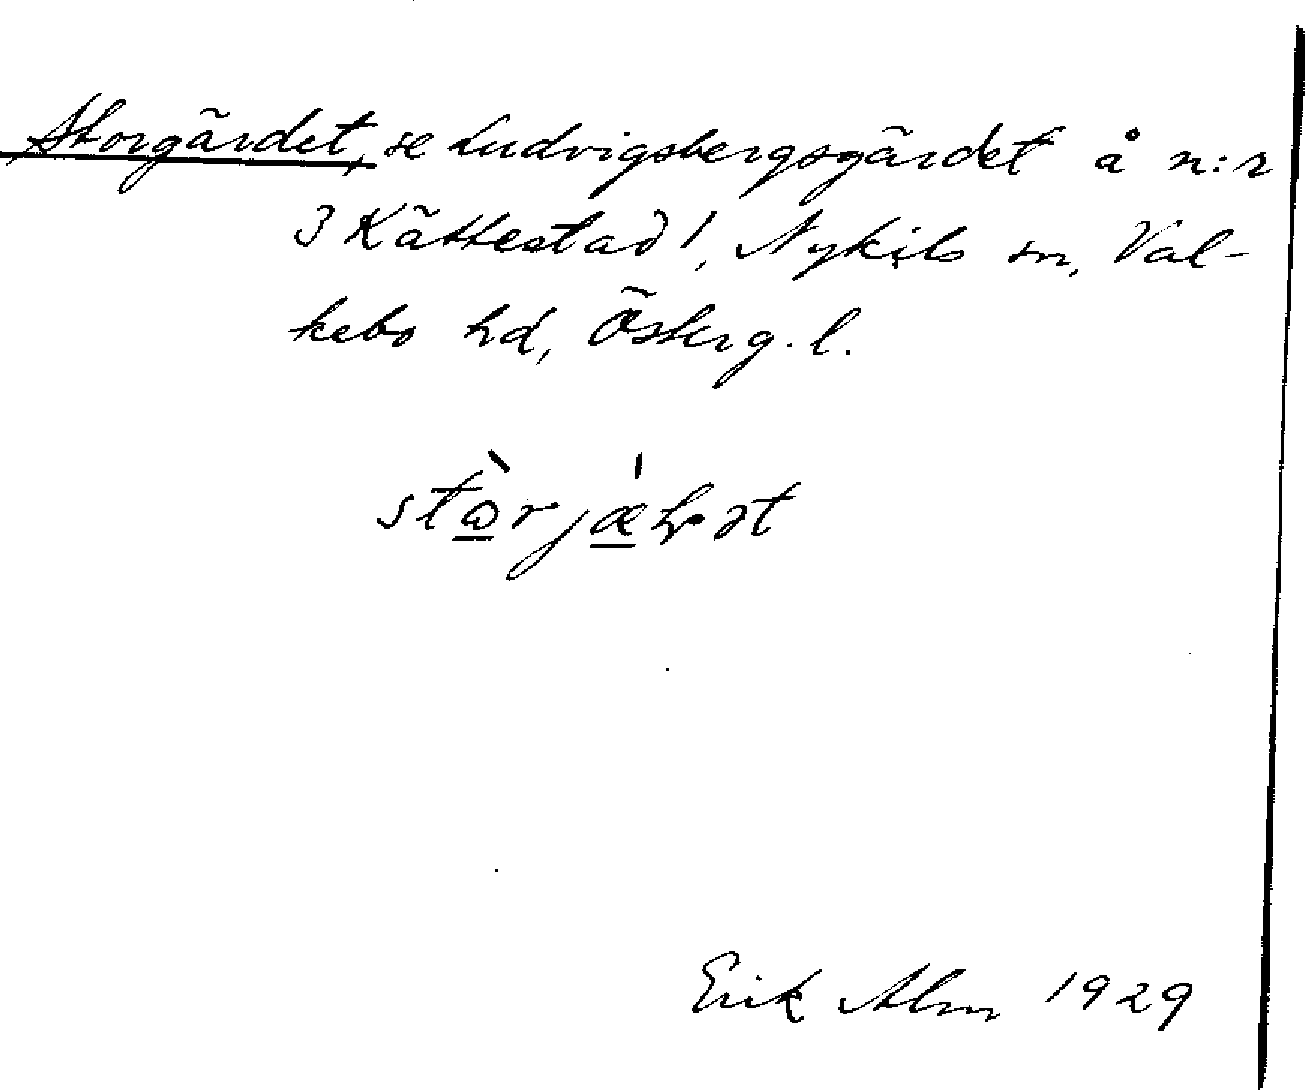 Storgärdet, se Ludvigsbergsgärdet å n:r
3 Kättestad 1, Nykils sn, Val-
kebo hd, Österg. l.
Erik Alm 1929